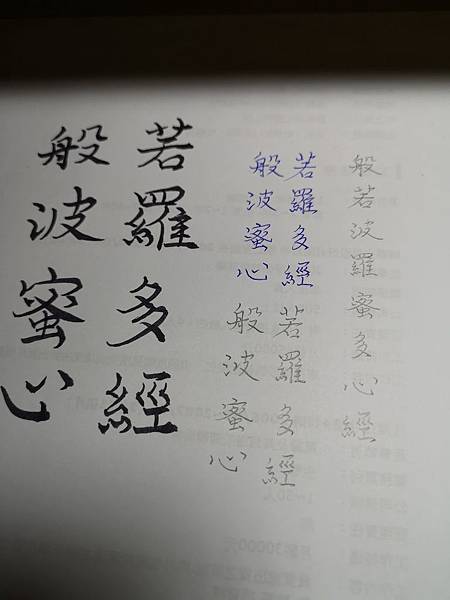 般若
波羅
蜜多
心經
般若
波羅
蜜多
心經
般若
波羅
蜜多
心經
般若波羅蜜多心經